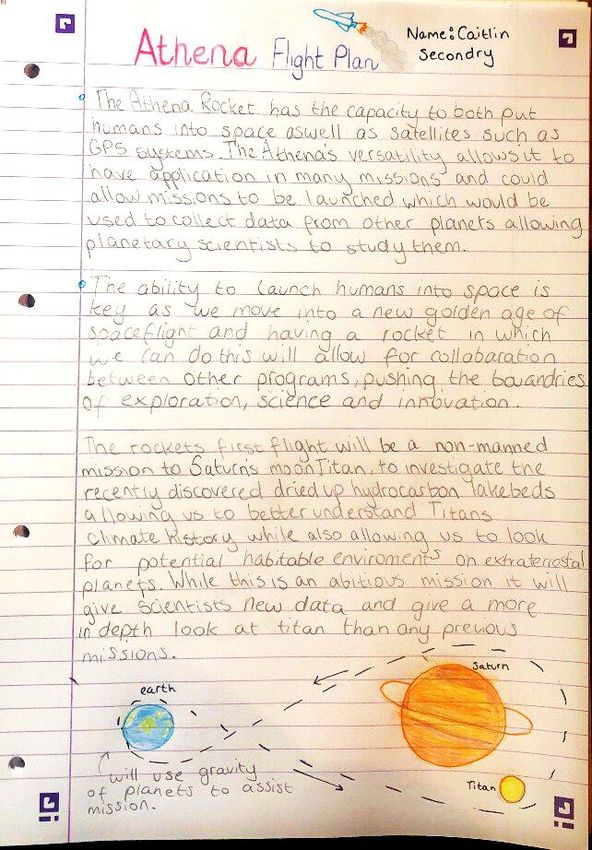 Athena Flight Plan
Name: Caitlin
Secondry
The Athena Rocket has the capacity to both put
humans into space aswell as satellites such as
GPS systems. The Athena's versatility allows it to
have application in many missions and could
allow missions to be launched which would be
used to collect data from other planets allowing
planetary scientists to study them.
The ability to launch humans into space is
key as we move into a new golden age of
spaceflight and having a rocket in which
we can do this will allow for collabaration
between other programs, pushing the bouandries
of exploration, science and innovation.
The rockets first flight will be a non-manned
mission to Saturn's moon Titan, to investigate the
recently discovered dried up hydrocarbon lakebeds
allowing us to better understand Titans
climate history while also allowing us to look
for potential habitable enviroments on extraterrestal
planets. While this is an abitious mission it will
give scientists new data and give a more
in depth look at titan than any previous
missions.
Saturn
earth
Titan
will use gravity
of planets to assist
mission.